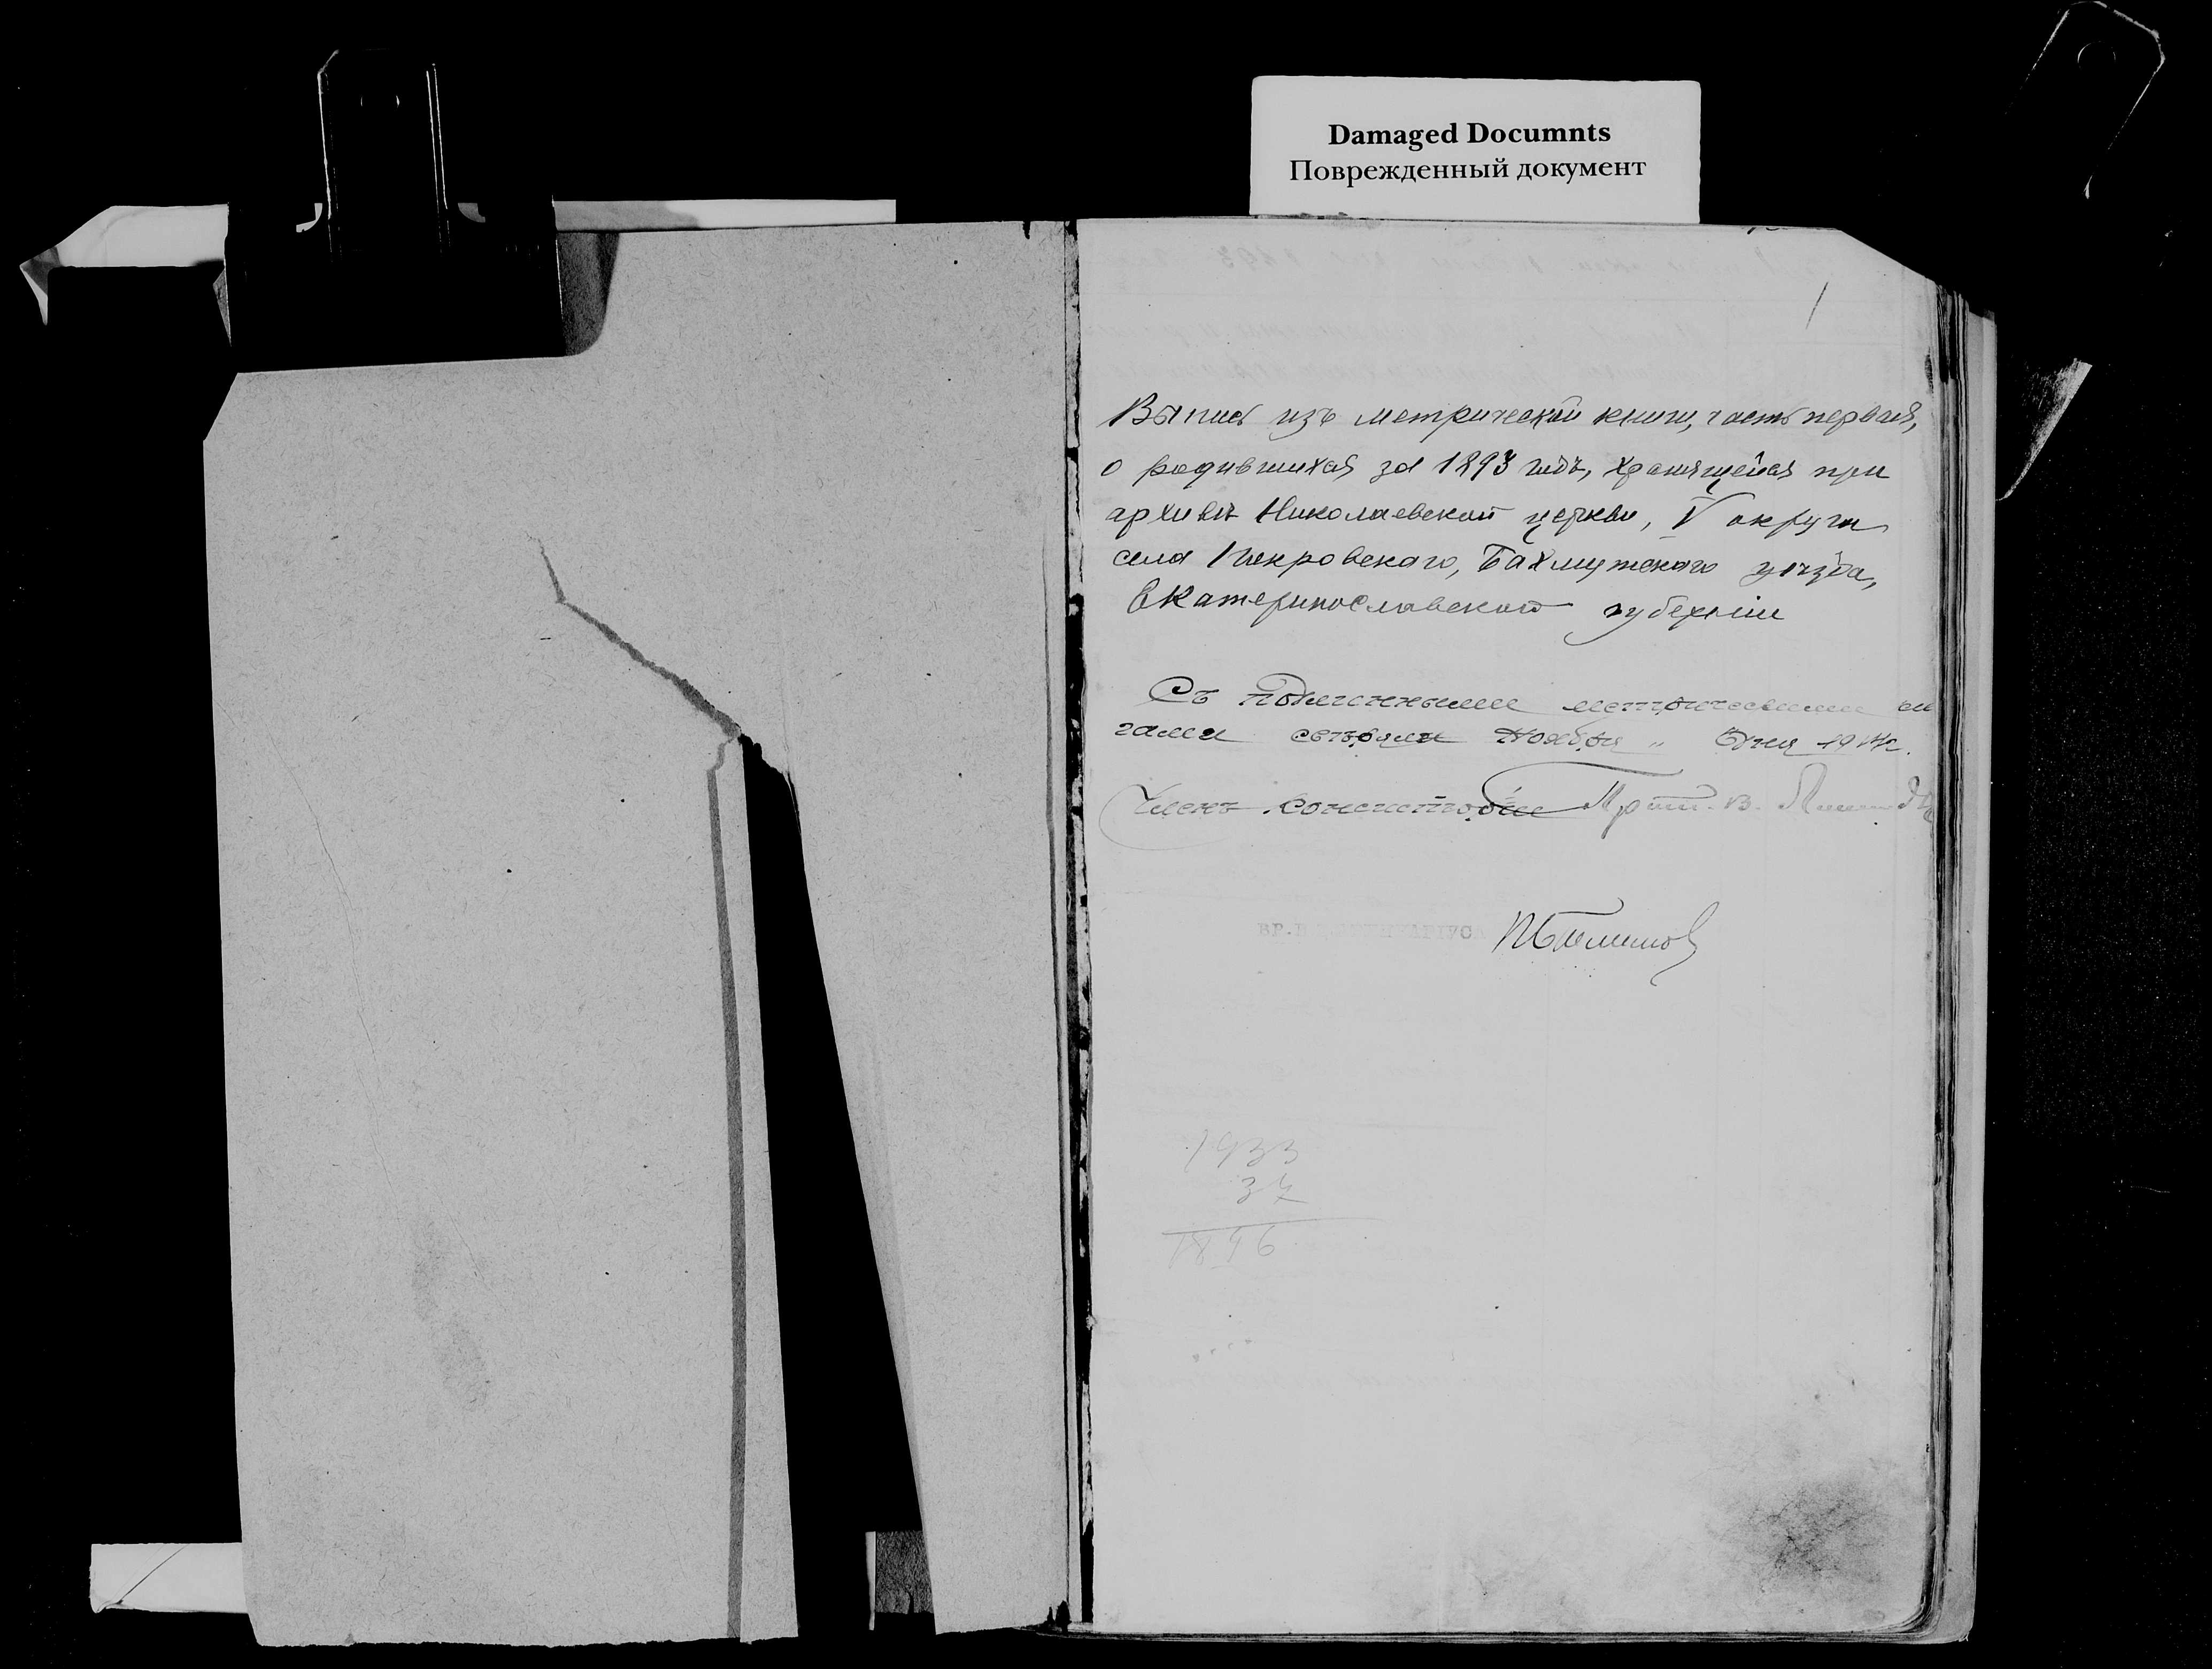 Damaged Documnts
Поврежденный документ
1
Выпись изъ метрической книги, часть первая,
о родившихся за 1893 годъ, хранящейся при
архивѣ Николаевской церкви, V округа
села Покровскаго, Бахмутскаго уѣзда,
Екатеринославской губерніи
Съ подлинными метрическими кни
гами свѣряли Ноября „ дня 1914г.
Членъ Консисторіи Прот. В.
1933
37
1896